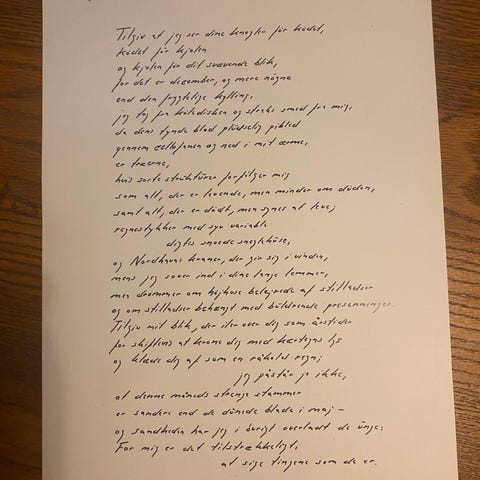 Tilgiv at jeg ser dine knogler før kødet,
kødet før kjolen
og kjolen før dit svævende blik,
for det er december, og mere nøgne
end den frygtelige kylling,
jeg tog fra køledisken og straks smed fra mig,
da dens tynde blod pludselig piblede
gennem cellofanen og ned i mit ærme,
er træerne,
hvis sorte strukturer forfølger mig
som alt, der er levende, men minder om døden,
samt alt, der er dødt, men synes at leve;
regnestykker med syv variable
digtes snoede sneglehuse,
og Nordhavns kraner, der gir sig i vinden,
mens jeg sover ind i dine lange lemmer,
men drømmer om højhuse belejrede af stilladser
og om stilladser behængt med buldrende presenninger.
Tilgiv mit blik, der iler over dig som årstider
for skiftevis at krone dig med kærtegns lys
og klæde dig af som en råkold regn;
jeg påstår jo ikke,
at denne måneds strenge stammer
er sandere end de dånede blade i maj –
og sandheden har jeg i øvrigt overladt de unge;
For mig er det tilstrækkeligt,
at sige tingene som de er.